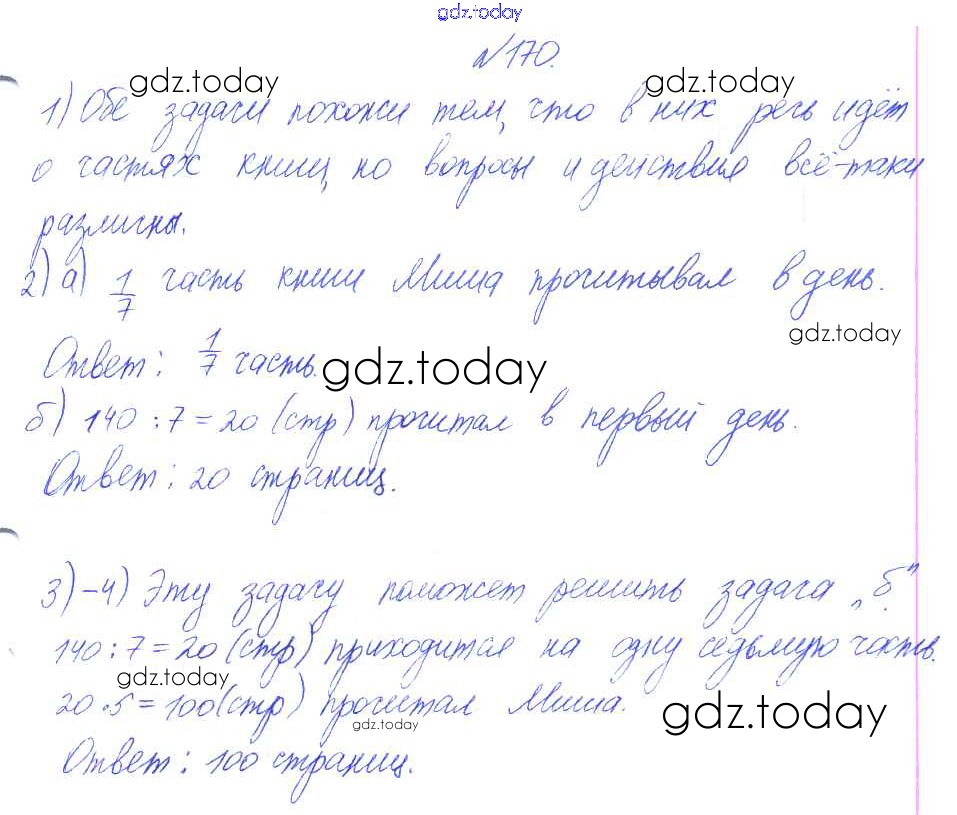 gdz.today
№170.
gdz.today gdz.today
1) Обе задачи похожи тем, что в них речь идёт
о частях книги, но вопросы и действия всё-таки
различны.
2) а) 1/7 часть книги Миша прочитывал в день.
gdz.today
Ответ: 1/7 часть.
gdz.today
б) 140 : 7 = 20 (стр) прочитал в первый день.
Ответ: 20 страниц.
3)-4) Эту задачу поможет решить задача „б".
140 : 7 = 20 (стр) приходится на одну седьмую часть.
gdz.today
20 · 5 = 100 (стр) прочитал Миша.
gdz.today gdz.today
Ответ: 100 страниц.